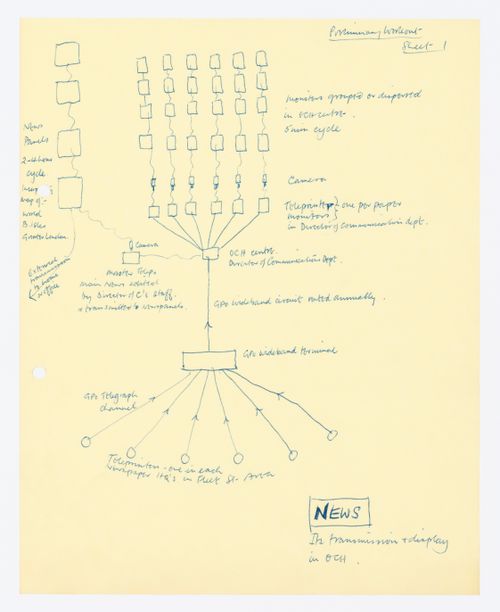 Preliminary Workout
Sheet 1
monitors grouped or dispersed
in OCH centre.
5 min cycle
News
Panels
2-4 hour
cycle
map of
world
B. Isles
Greater London.
External
transmission
to home
Camera
Teleprinter } one per paper
monitors }
in Director of Communication dept.
Camera
OCH centre.
Director of Communications Dept.
master Telep.
main News edited
by Director of C's Staff.
+ transmitted to newspanels.
GPO wideband circuit rented annually.
GPO wideband terminal
GPO Telegraph
channel
Teleprinters - one in each
newspaper HQ's in Fleet St. Area
NEWS
Its transmission + display
in OCH.